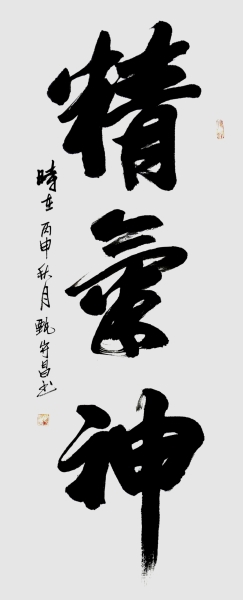 精氣神
時在丙申秋月甄守昌書